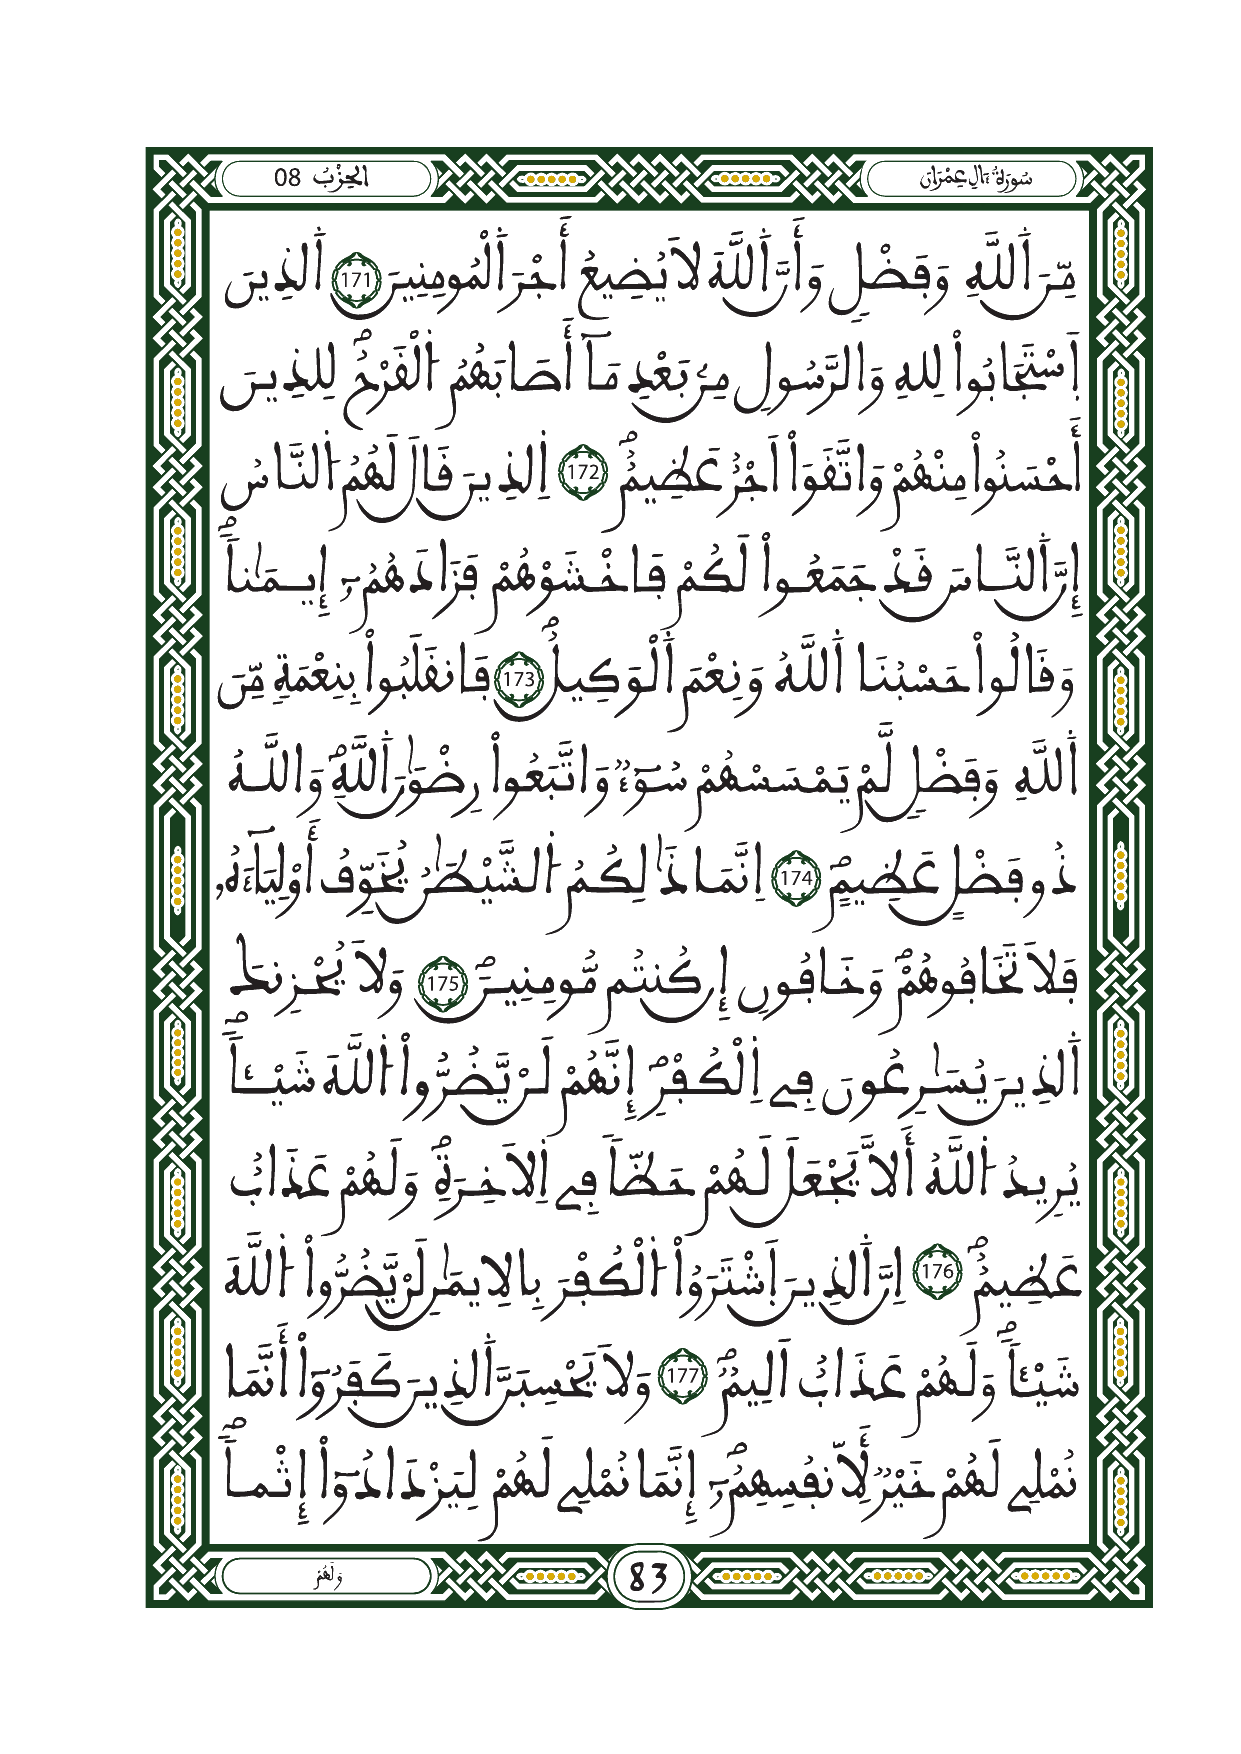 سُورَةُ ءَالِ عِمْرَانَ
الحِزْبُ 08
مِّنَ اَ۬للَّهِ وَفَضْلٖ وَأَنَّ اَ۬للَّهَ لَا يُضِيعُ أَجْرَ اَ۬لْمُومِنِينَ 171 اَ۬لذِينَ
اَ۪سْتَجَابُواْ لِلهِ وَالرَّسُولِ مِنۢ بَعْدِ مَآ أَصَابَهُمُ اُ۬لْقَرْحُۖ لِلذِينَ
أَحْسَنُواْ مِنْهُمْ وَاتَّقَوَاْ اَجْرٌ عَظِيمٌۖ 172 اِ۬لذِينَ قَالَ لَهُمُ اُ۬لنَّاسُ
إِنَّ اَ۬لنَّاسَ قَدْ جَمَعُواْ لَكُمْ فَاخْشَوْهُمْ فَزَادَهُمُۥٓ إِيمَٰناٗۖ
وَقَالُواْ حَسْبُنَا اَ۬للَّهُ وَنِعْمَ اَ۬لْوَكِيلُۖ 173 فَانقَلَبُواْ بِنِعْمَةٖ مِّنَ
اَ۬للَّهِ وَفَضْلٖ لَّمْ يَمْسَسْهُمْ سُوٓءٞ وَاتَّبَعُواْ رِضْوَٰنَ اَ۬للَّهِۖ وَاللَّهُ
ذُو فَضْلٍ عَظِيمٍۖ 174 اِنَّمَا ذَٰلِكُمُ اُ۬لشَّيْطَٰنُ يُخَوِّفُ أَوْلِيَآءَهُۥ
فَلَا تَخَافُوهُمْۖ وَخَافُونِ إِن كُنتُم مُّومِنِينَۖ 175 وَلَا يُحْزِنكَ
اَ۬لذِينَ يُسَٰرِعُونَ فِے اِ۬لْكُفْرِۖ إِنَّهُمْ لَنْ يَّضُرُّواْ اُ۬للَّهَ شَيْـٔاٗۖ
يُرِيدُ اُ۬للَّهُ أَلَّا يَجْعَلَ لَهُمْ حَظّاٗ فِے اِ۬لَاخِرَةِۖ وَلَهُمْ عَذَابٌ
عَظِيمٌۖ 176 اِنَّ اَ۬لذِينَ اَ۪شْتَرَوُاْ اُ۬لْكُفْرَ بِالِايمَٰنِ لَنْ يَّضُرُّواْ اُ۬للَّهَ
شَيْـٔاٗۖ وَلَهُمْ عَذَابٌ اَلِيمٌۖ 177 وَلَا يَحْسِبَنَّ اَ۬لذِينَ كَفَرُوٓاْ أَنَّمَا
نُمْلِے لَهُمْ خَيْرٞ لِّأَنفُسِهِمُۥٓۖ إِنَّمَا نُمْلِے لَهُمْ لِيَزْدَادُوٓاْ إِثْماٗۖ
83
وَلَهُمْ